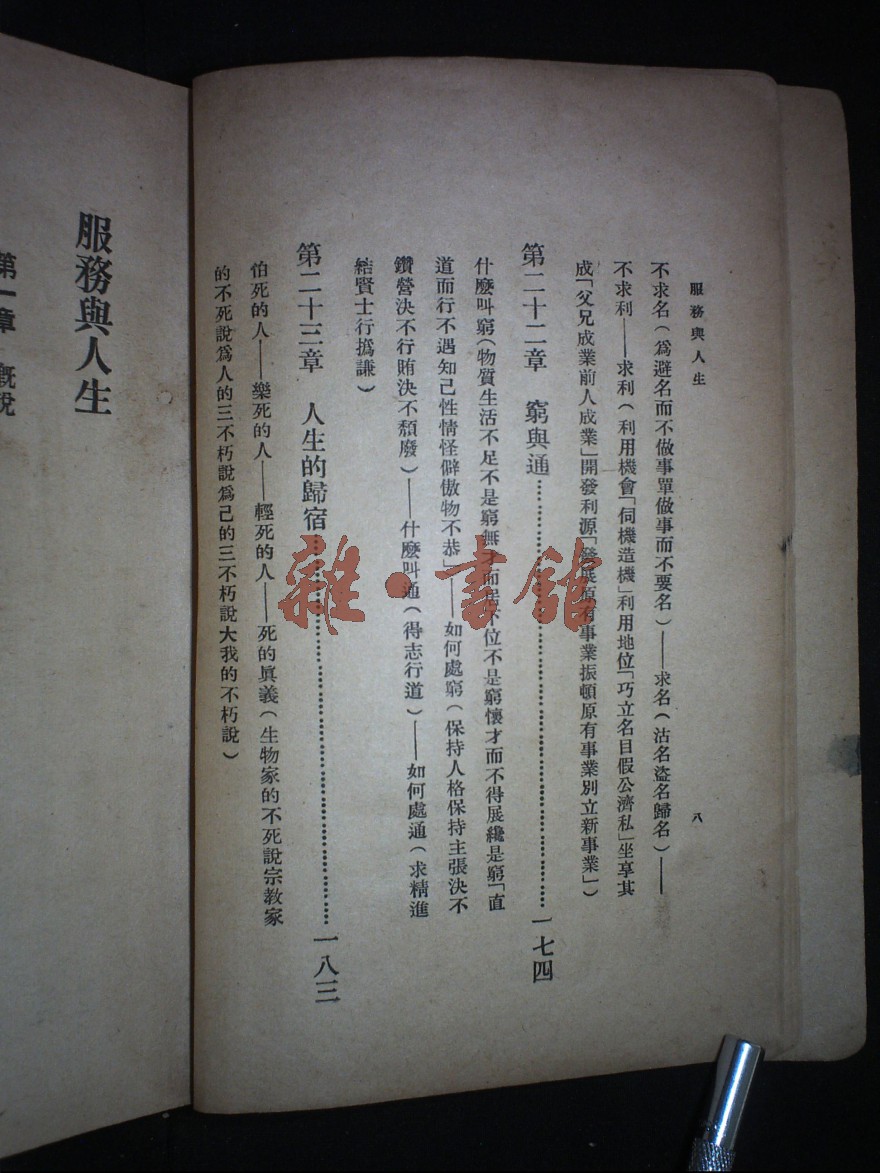 服務與人生
八
不求名(爲避名而不做事單做事而不要名)——求名(沽名盜名歸名)——
不求利——求利(利用機會「伺機造機」利用地位「巧立名目假公濟私」坐享其
成「父兄成業前人成業」開發利源「發展原有事業振頓原有事業別立新事業」)
第二十二章 窮與通…………一七四
什麼叫窮(物質生活不足不是窮無才而居下位不是窮懷才而不得展纔是窮「直
道而行不遇知己性情怪僻傲物不恭」——如何處窮(保持人格保持主張決不
鑽營決不行賄決不頹廢)——什麼叫通(得志行道)——如何處通(求精進
結賢士行撝謙)
第二十三章 人生的歸宿…………一八三
怕死的人——樂死的人——輕死的人——死的眞義(生物家的不死說宗教家
的不死說爲人的三不朽說爲己的三不朽說大我的不朽說)
服務與人生
第一章 概說
雜·書館